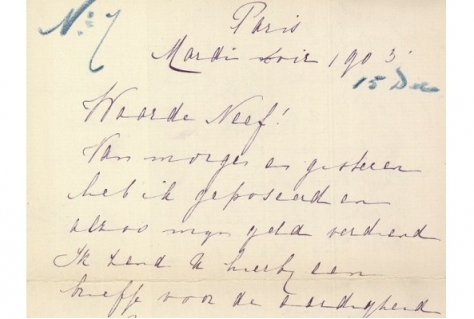 No 7
Paris
Mardi soir 1903
15 Dec
Waarde Neef!
Van morgen en gisteren
heb ik geposeerd en
alzoo mijn geld verdiend
Ik zend U hierbij een
voor de aardigheid